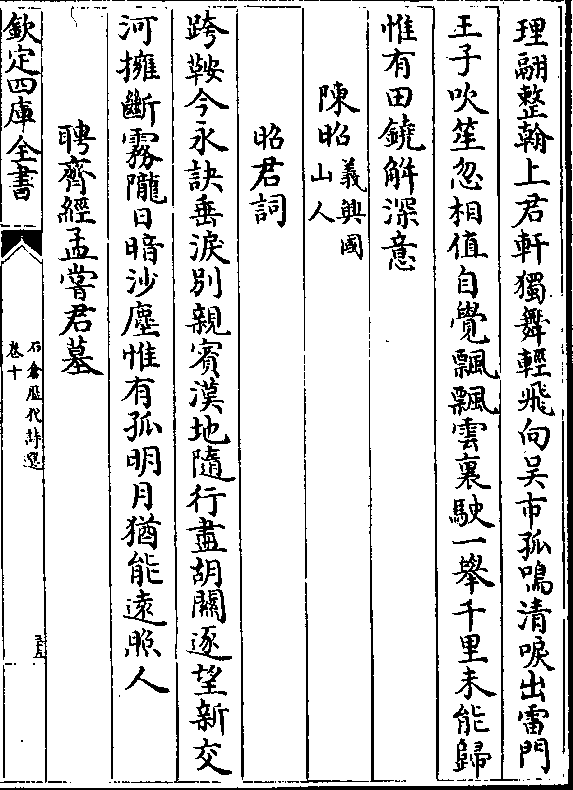 理翮整翰上君軒獨舞輕飛向吴市孤鳴清唳出雷門
王子吹笙忽相值自覺飄飄雲裏駛一舉千里未能歸
惟有田饒解深意
陳昭義興國山人
昭君詞
跨鞍今永訣垂淚別親賓漢地隨行盡胡關逐望新交
河擁斷霧隴日暗沙塵惟有孤明月猶能遠照人
聘齊經孟嘗君墓
欽定四庫全書
石倉歴代詩選
卷十